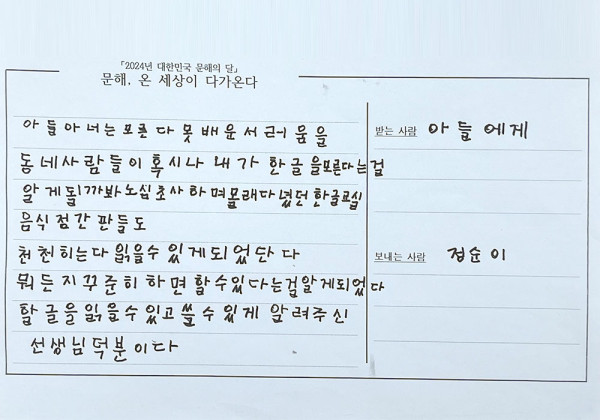 「2024년 대한민국 문해의 달」
문해, 온 세상이 다가온다
아들아 너는 모른다 못 배운 서러움을
동네사람들이 혹시나 내가 한글을모른다는걸
알게될까봐 노심초사하며몰래다녔던 한글교실
음식점간판들도
천천히는다 읽을수 있게되었단다
뭐든지꾸준히 하면 할수있다는걸알게되었다
한글을읽을수있고쓸수있게 알려주신
선생님덕분이다
받는 사람 아들에게
보내는 사람 점순이